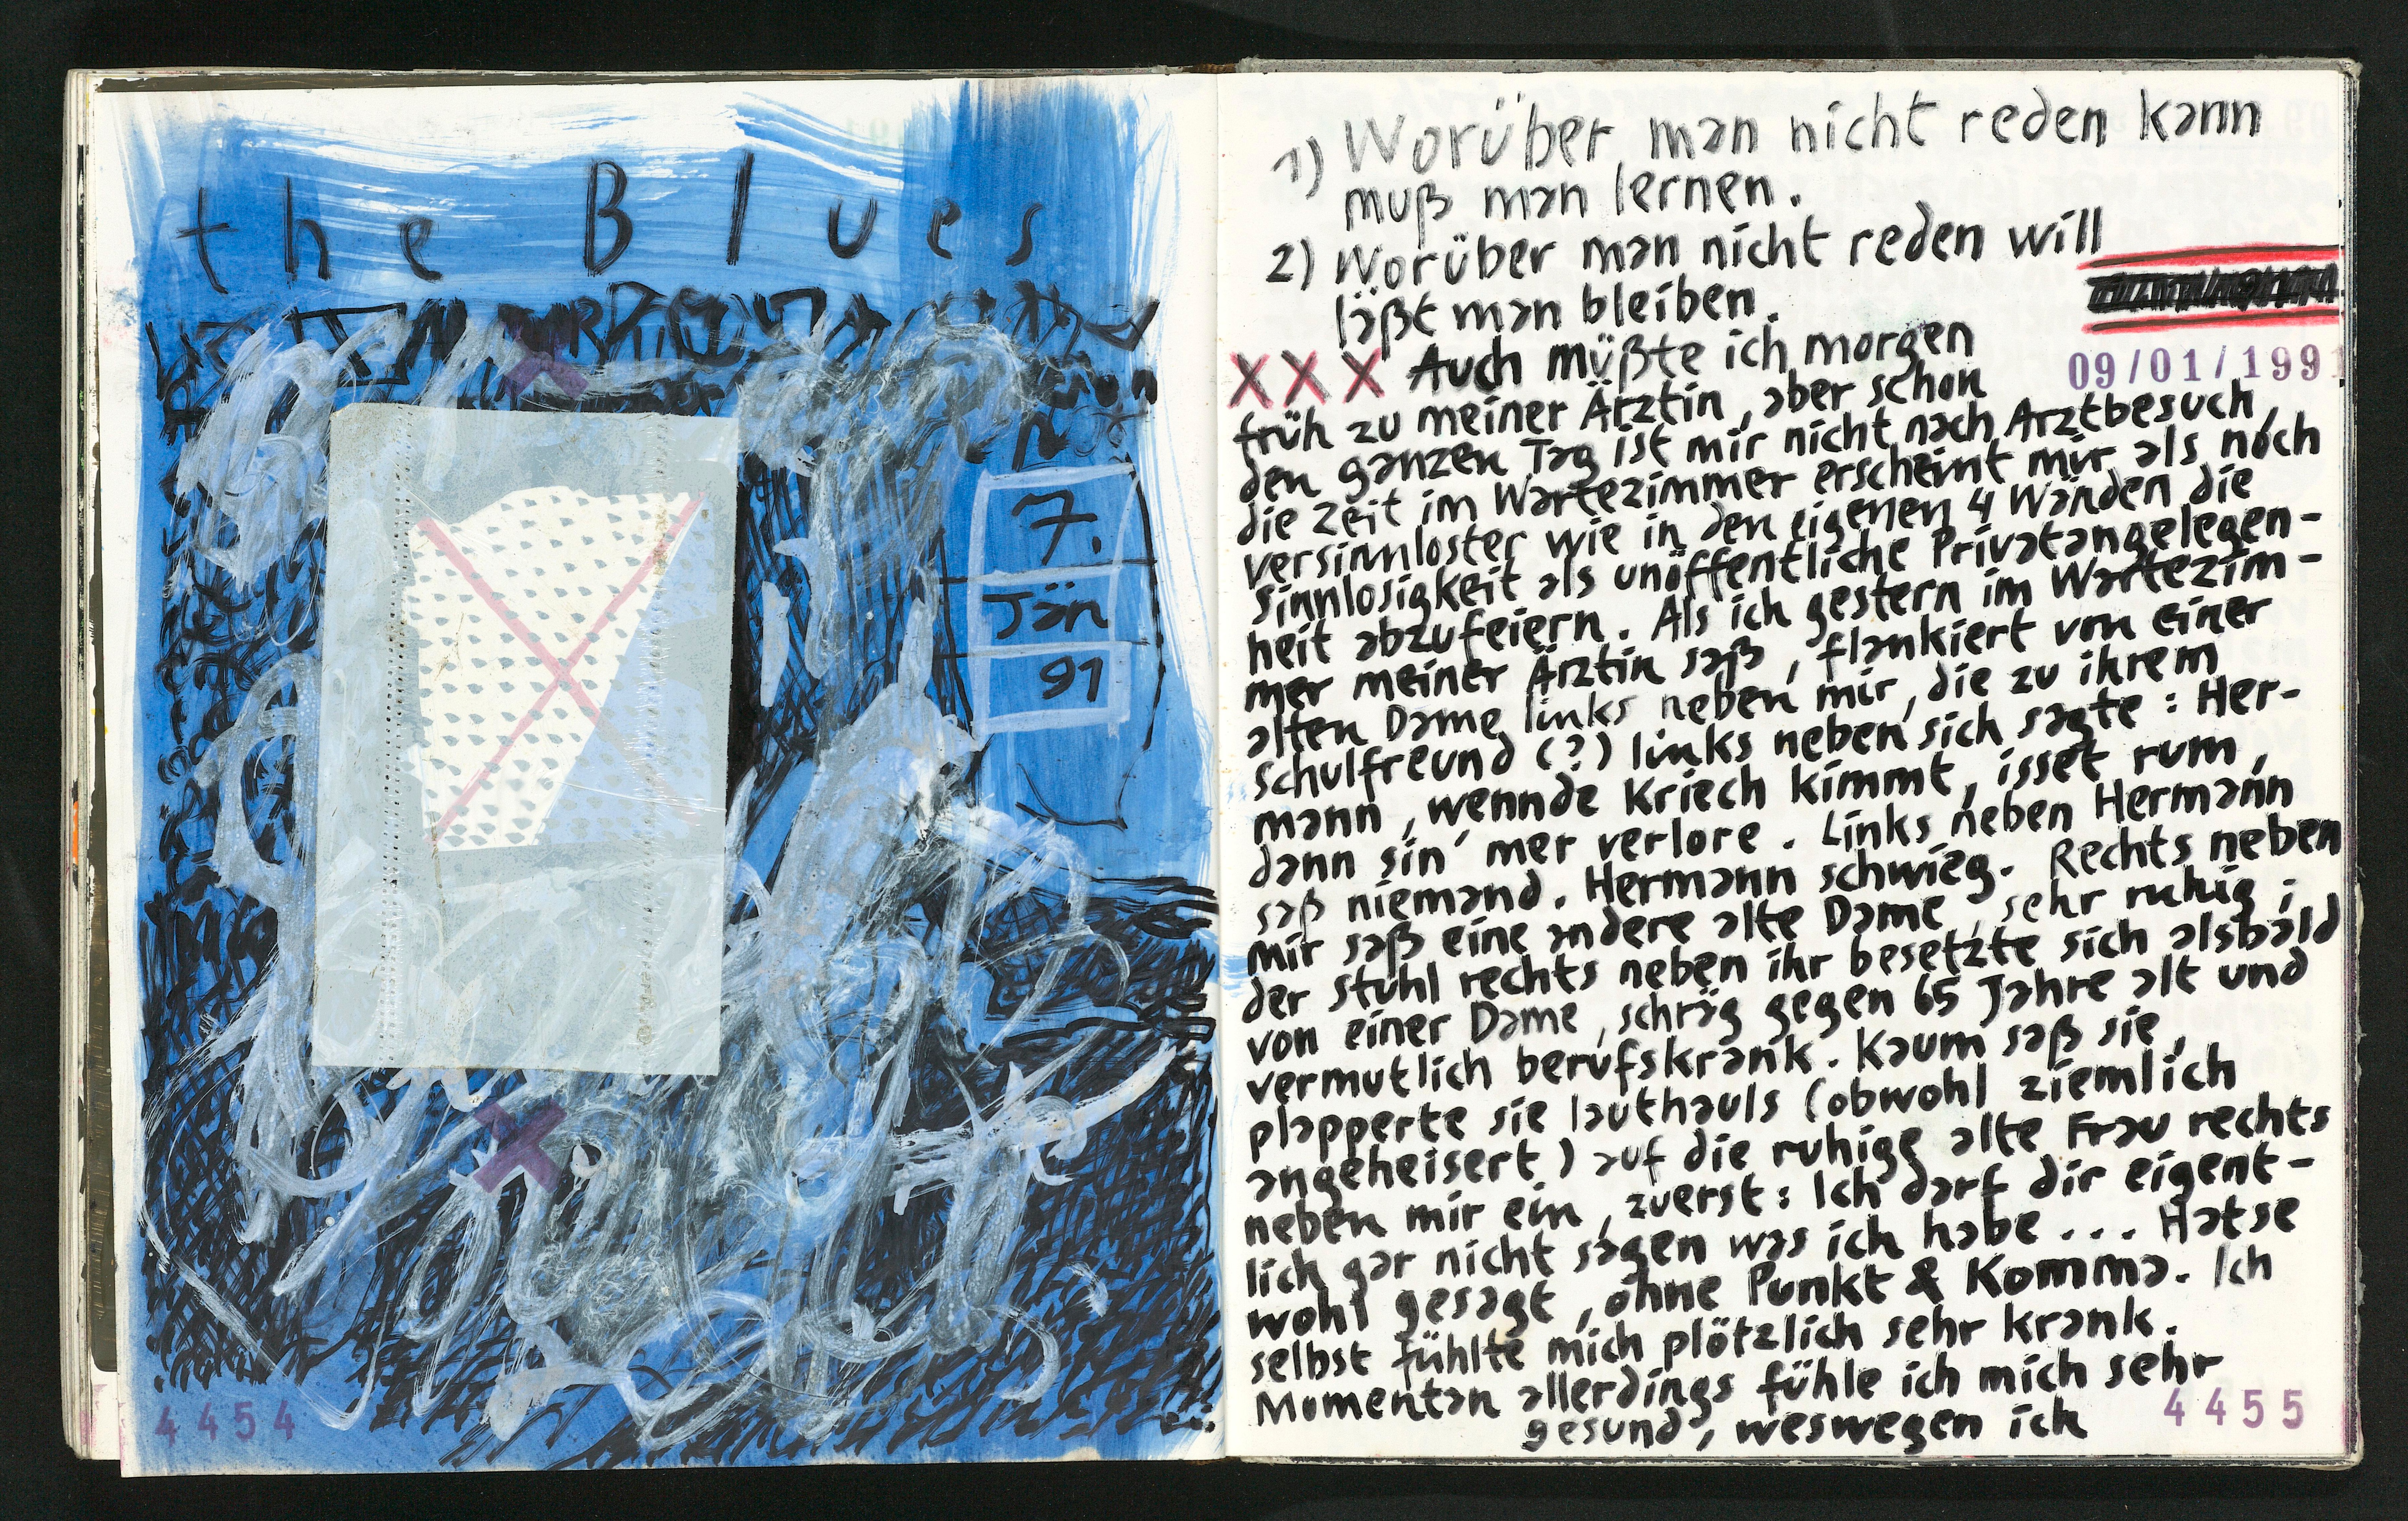 the Blues
7.
Jän
91
4454
1) Worüber man nicht reden kann
muß man lernen.
2) Worüber man nicht reden will
läßt man bleiben.
09/01/1991
XXX Auch müßte ich morgen
früh zu meiner Ärztin, aber schon
den ganzen Tag ist mir nicht nach Arztbesuch,
die Zeit im Wartezimmer erscheint mir als noch
versinnloster wie in den eigenen 4 Wänden die
Sinnlosigkeit als unöffentliche Privatangelegen-
heit abzufeiern. Als ich gestern im Wartezim-
mer meiner Ärztin saß, flankiert von einer
alten Dame links neben mir, die zu ihrem
Schulfreund (?) links neben sich sagte: Her-
mann, wennde Kriech kimmt, isset rum,
dann sin' mer verlore. Links neben Hermann
saß niemand. Hermann schwieg. Rechts neben
mir saß eine andere alte Dame, sehr ruhig;
der Stuhl rechts neben ihr besetzte sich alsbald
von einer Dame, schräg gegen 65 Jahre alt und
vermutlich berufskrank. Kaum saß sie,
plapperte sie lauthauls (obwohl ziemlich
angeheisert) auf die ruhige alte Frau rechts
neben mir ein, zuerst: Ich darf dir eigent-
lich gar nicht sagen was ich habe... Hatse
wohl gesagt, ohne Punkt & Komma. Ich
selbst fühlte mich plötzlich sehr krank.
Momentan allerdings fühle ich mich sehr
gesund, weswegen ich
4455